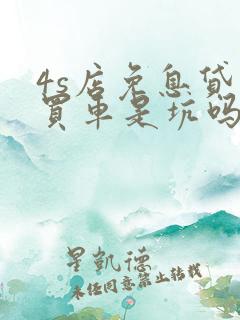 4s店免息贷
買車是坑吗
星凱德
未经同意禁止转载